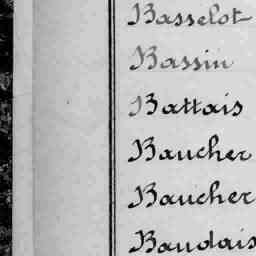 Basselot
Bassin
Battais
Baucher
Baucher
Baudais